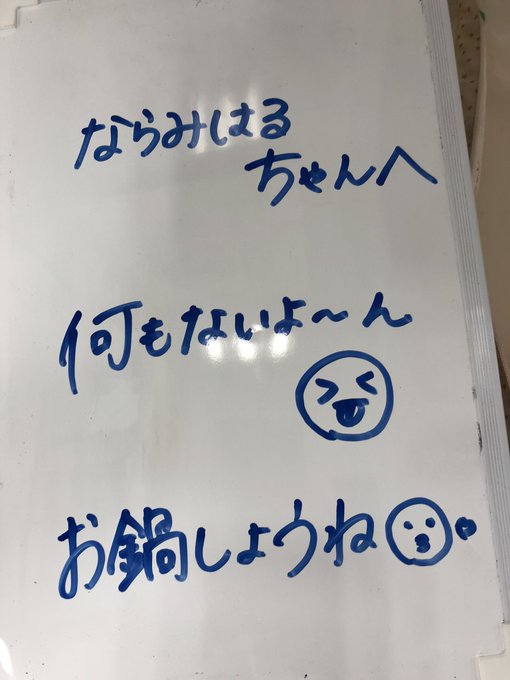 ならみはる
ちゃんへ
何もないよ〜ん
お鍋しようね